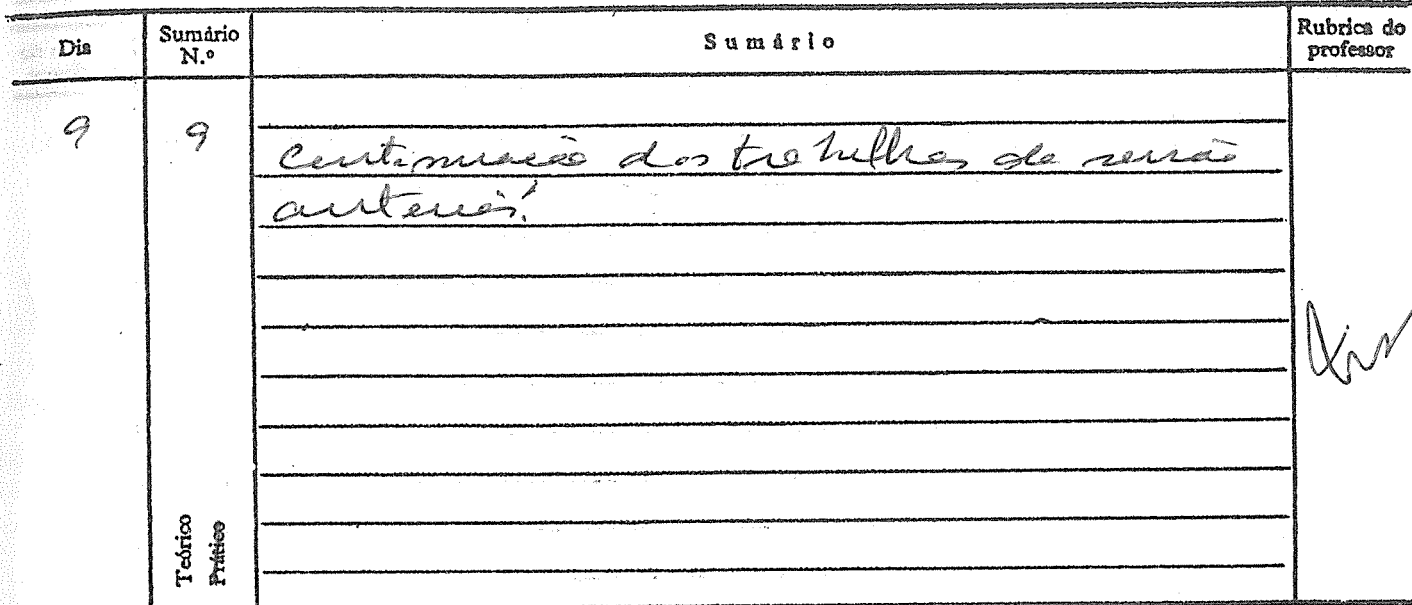 Dia
Sumário
N.º
Sumário
Rubrica do
professor
9
9
Continuação dos trabalhos da sessão
anterior.
Teórico
Prático